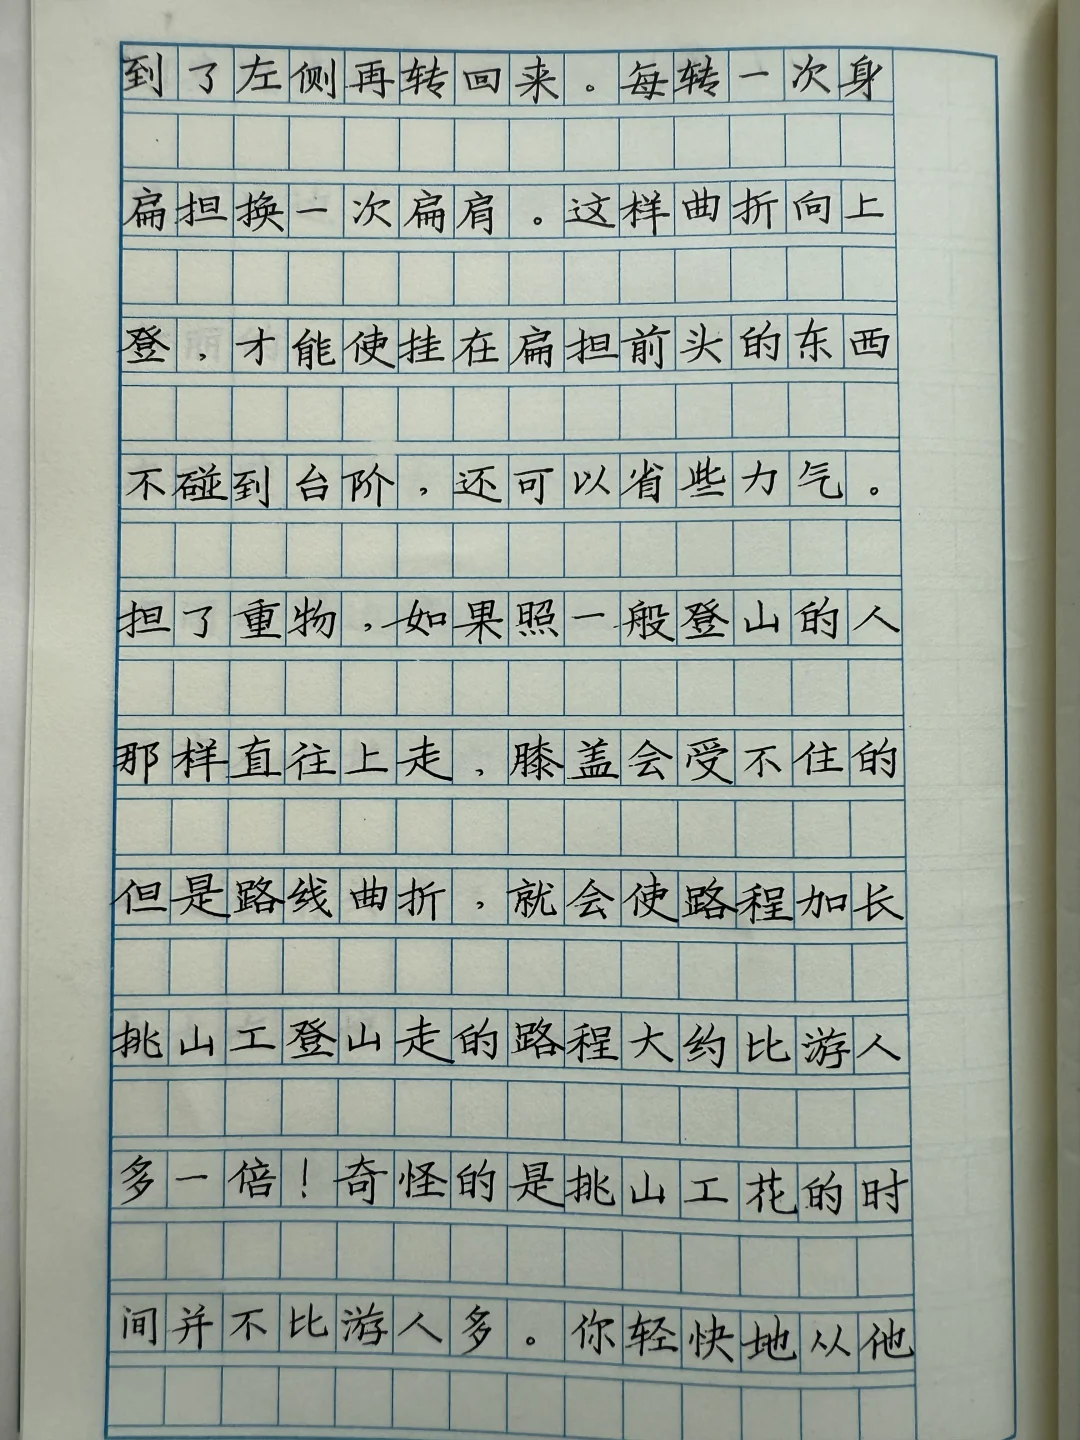 到了左侧再转回来。每转一次身
扁担换一次扁肩。这样曲折向上
登，才能使挂在扁担前头的东西
不碰到台阶，还可以省些力气。
担了重物，如果照一般登山的人
那样直往上走，膝盖会受不住的
但是路线曲折，就会使路程加长
挑山工登山走的路程大约比游人
多一倍！奇怪的是挑山工花的时
间并不比游人多。你轻快地从他